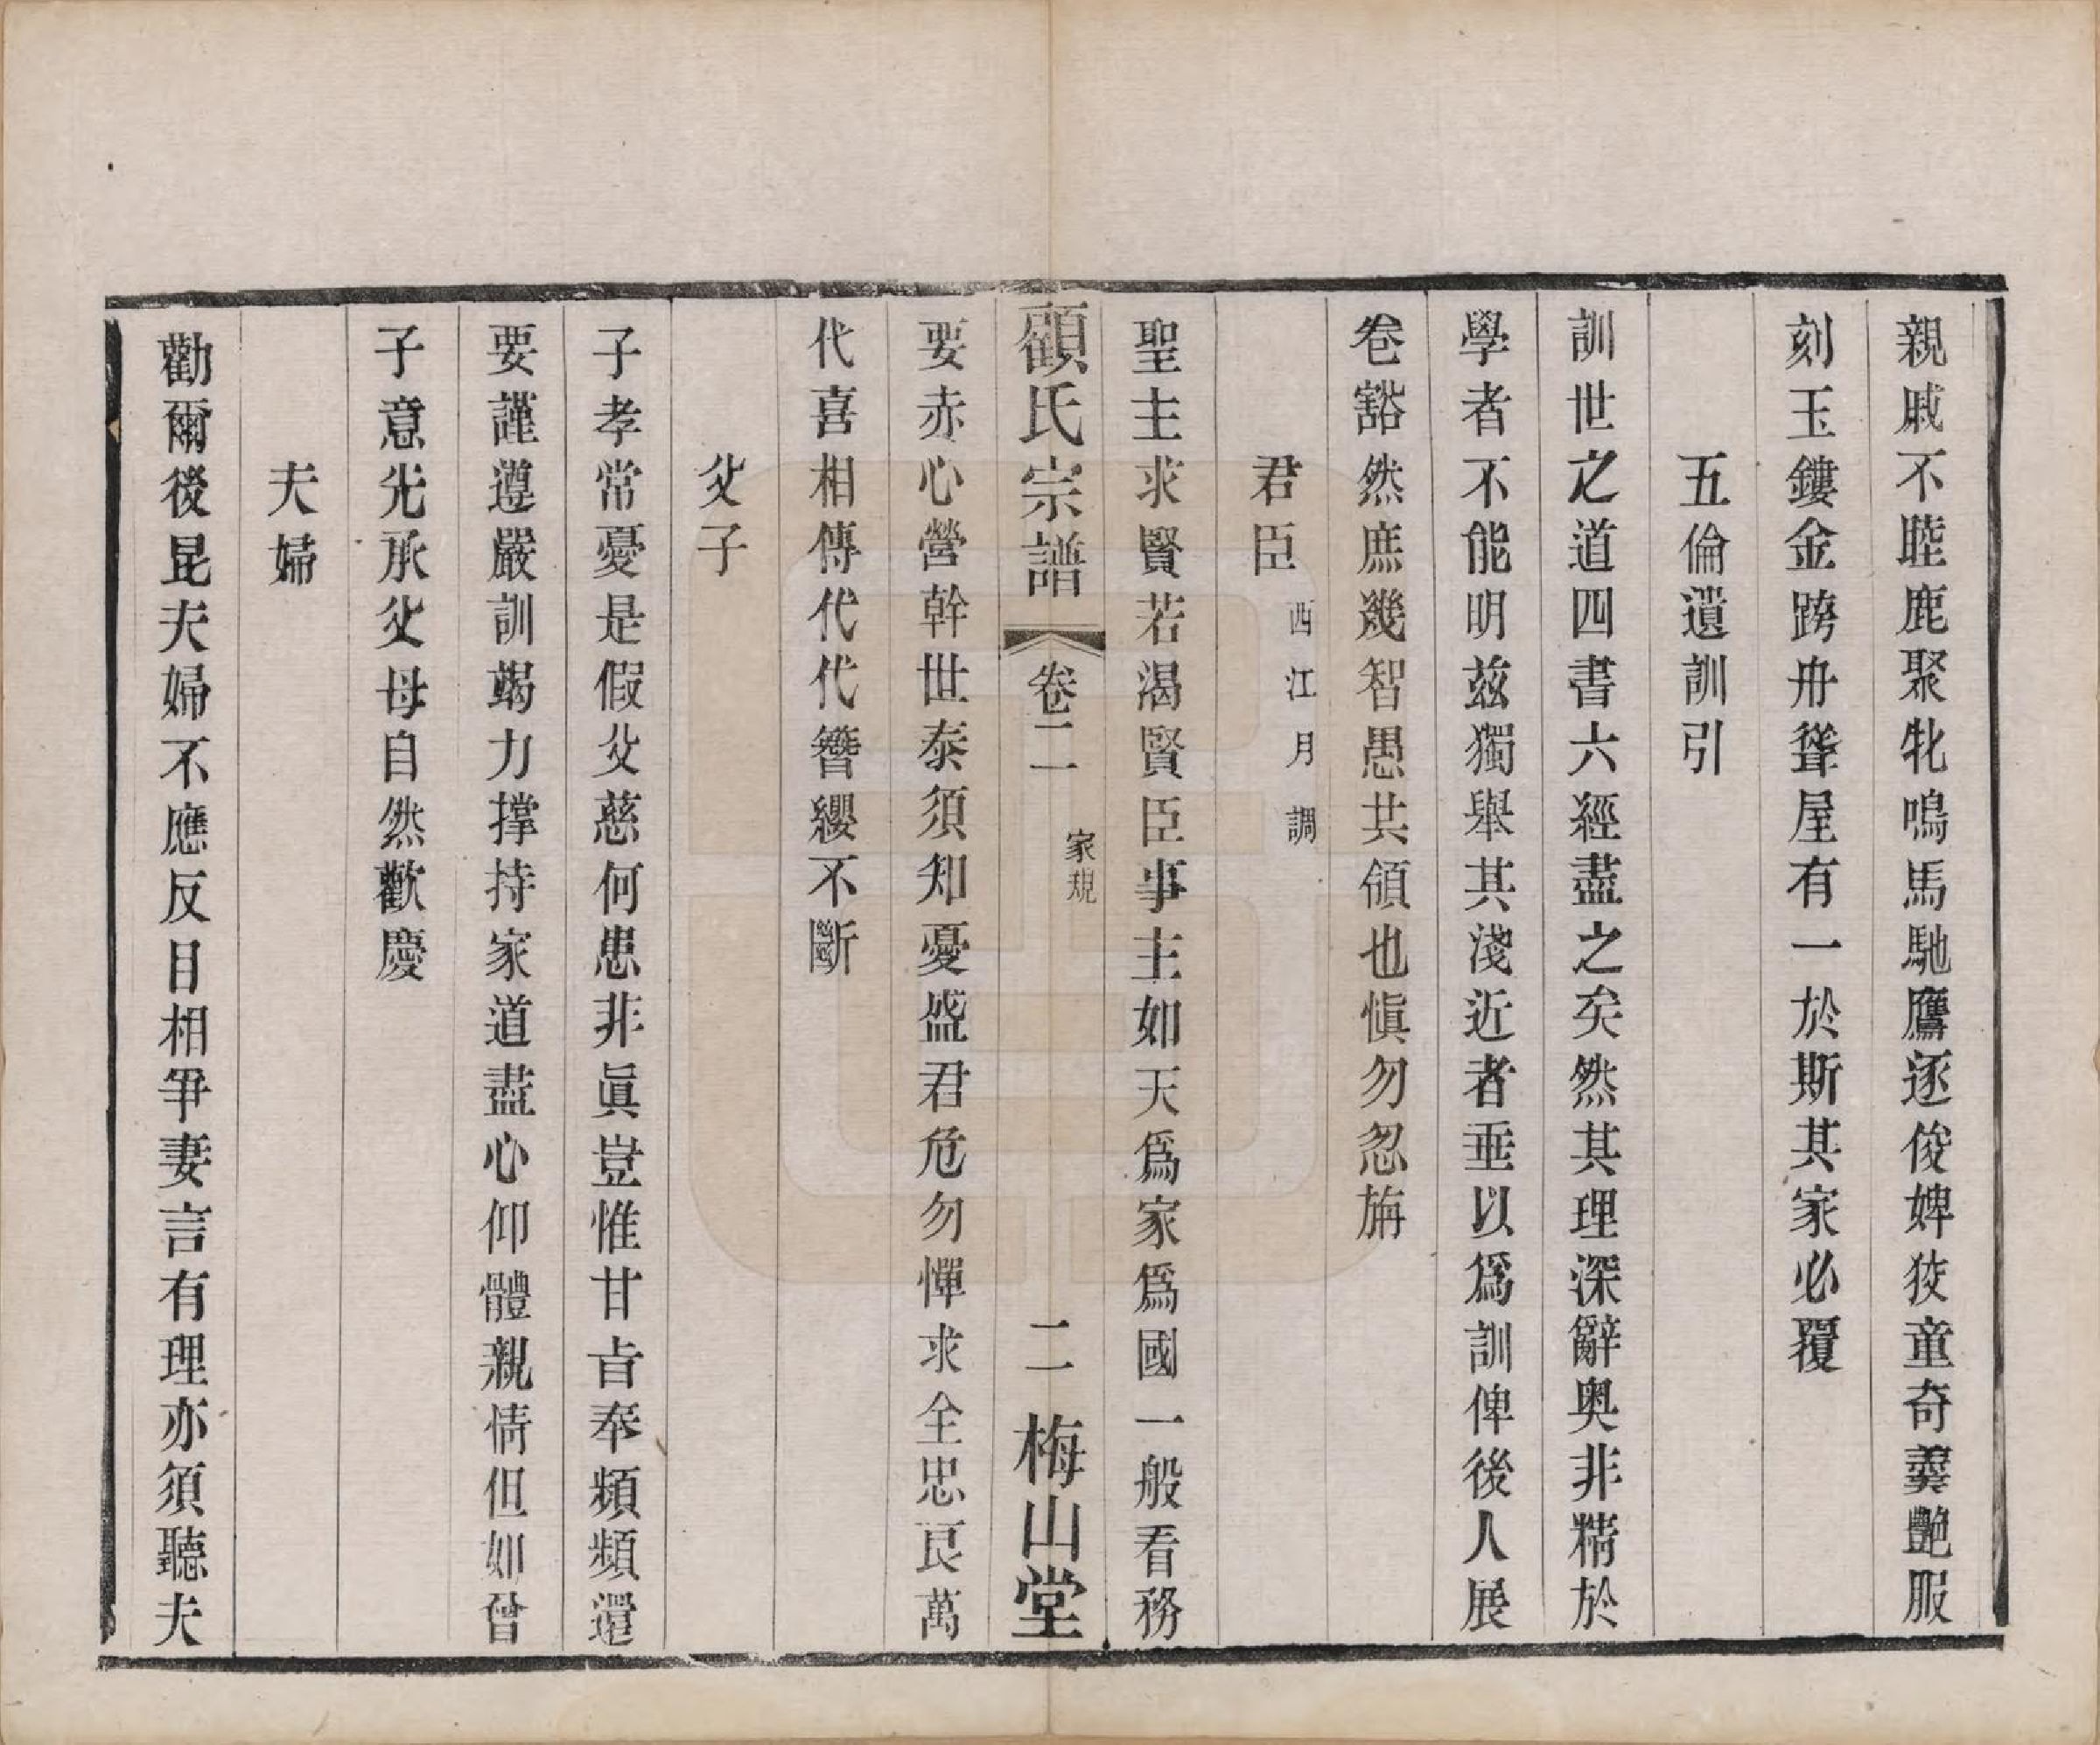 親戚不睦鹿聚牝鳴馬馳鷹逐俊婢狡童奇羹艷服
刻玉鏤金跨舟聳屋有一於斯其家必覆
五倫遺訓引
訓世之道四書六經盡之矣然其理深辭奥非精於
學者不能明茲獨舉其淺近者垂以爲訓俾後人展
卷豁然庶幾智愚共領也愼勿忽旃
君臣 西江月調
聖主求賢若渴賢臣事主如天爲家爲國一般看務
顧氏宗譜 卷二 家規 二 梅山堂
要赤心營幹世泰須知憂盛君危勿憚求全忠良萬
代喜相傳代代簪纓不斷
父子
子孝常憂是假父慈何患非眞豈惟甘旨奉頻頻還
要謹遵嚴訓竭力撑持家道盡心仰體親情但如曾
子意先承父母自然歡慶
夫婦
勸爾後昆夫婦不應反目相爭妻言有理亦須聽夫